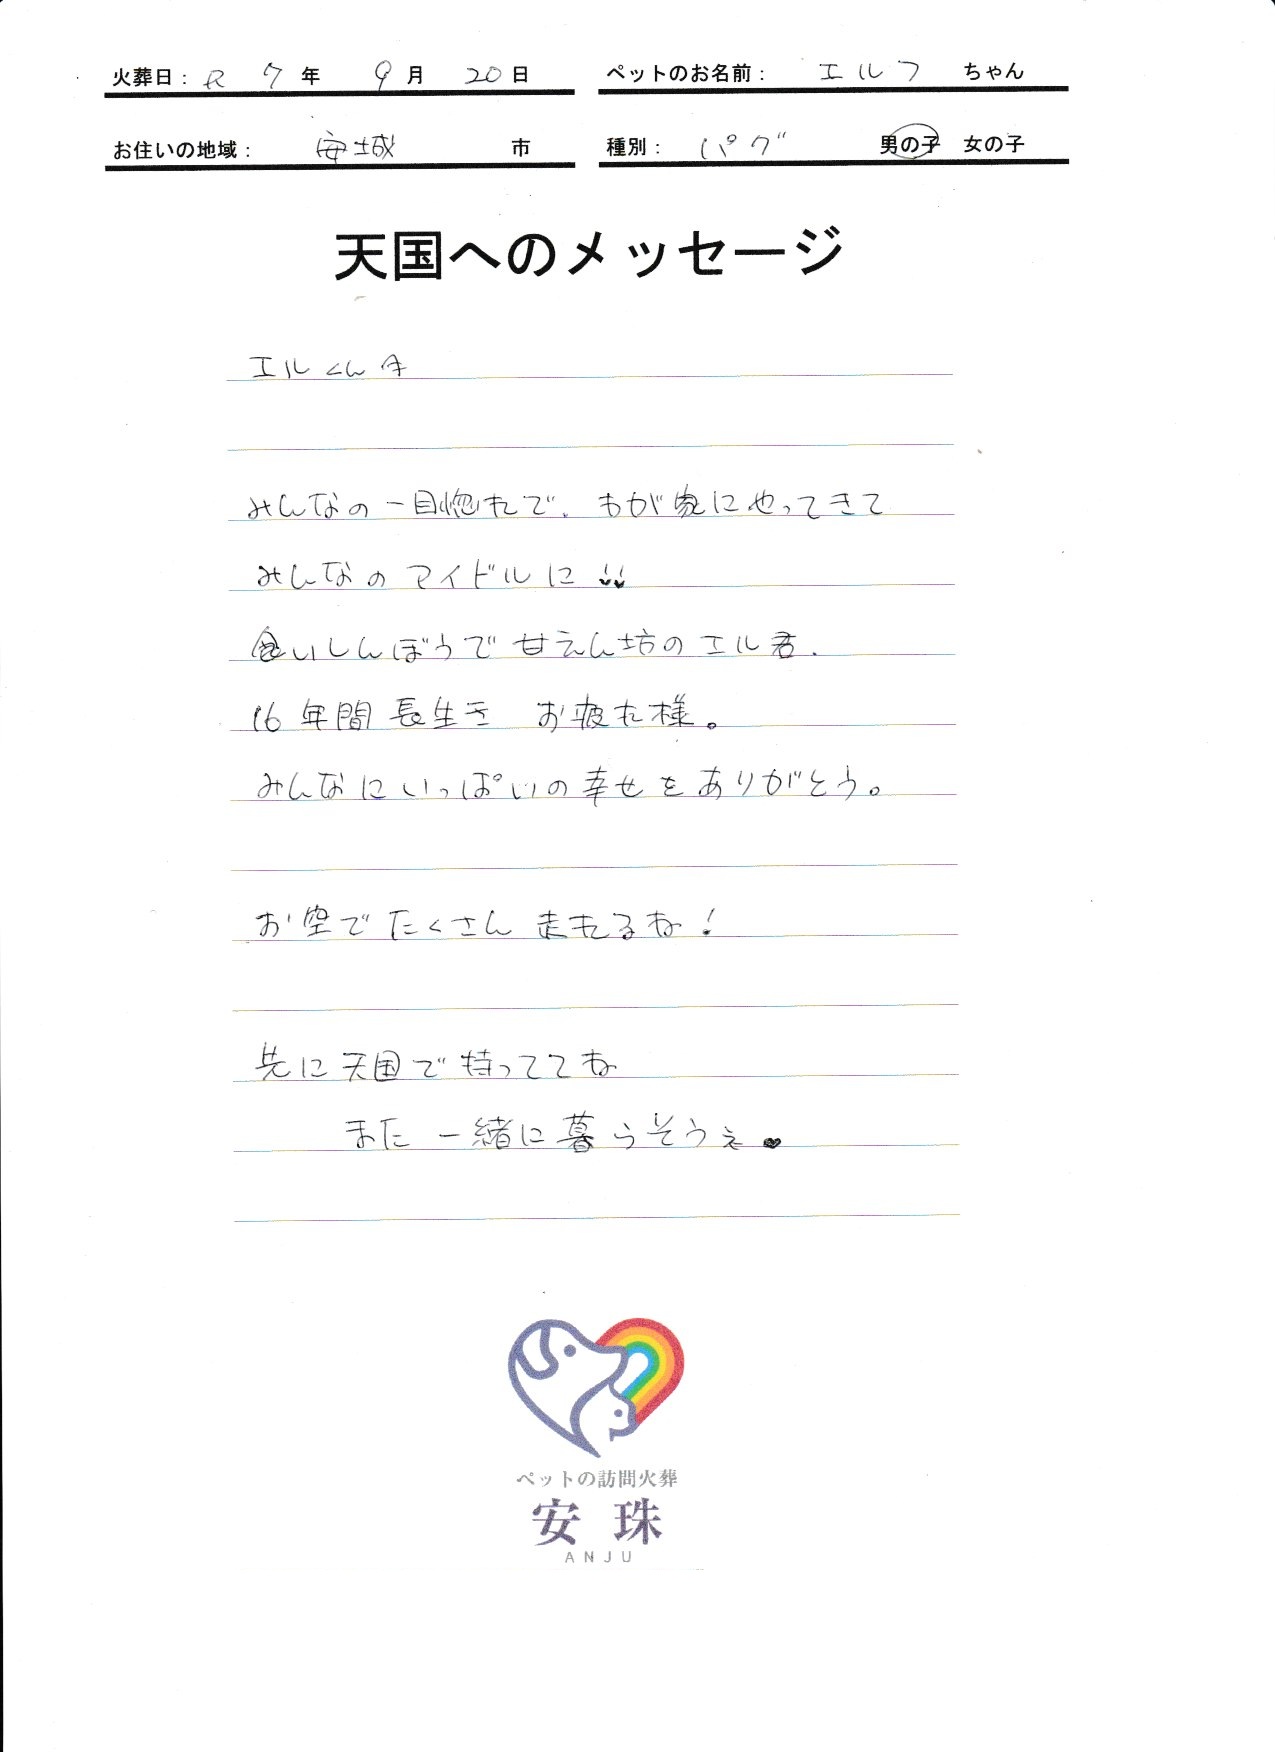 火葬日： R 7 年 9 月 20 日 ペットのお名前： エルフ ちゃん
お住いの地域： 安城 市 種別： パグ 男の子 女の子
天国へのメッセージ
エルくんへ
みんなの一目惚れで、わが家にやってきて
みんなのアイドルに
食いしんぼうで甘えん坊のエル君.
16年間長生き お疲れ様。
みんなにいっぱいの幸せをありがとう。
お空でたくさん走れるね！
先に天国で待っててね
また一緒に暮らそうえ♥
ペットの訪問火葬
安珠
ANJU